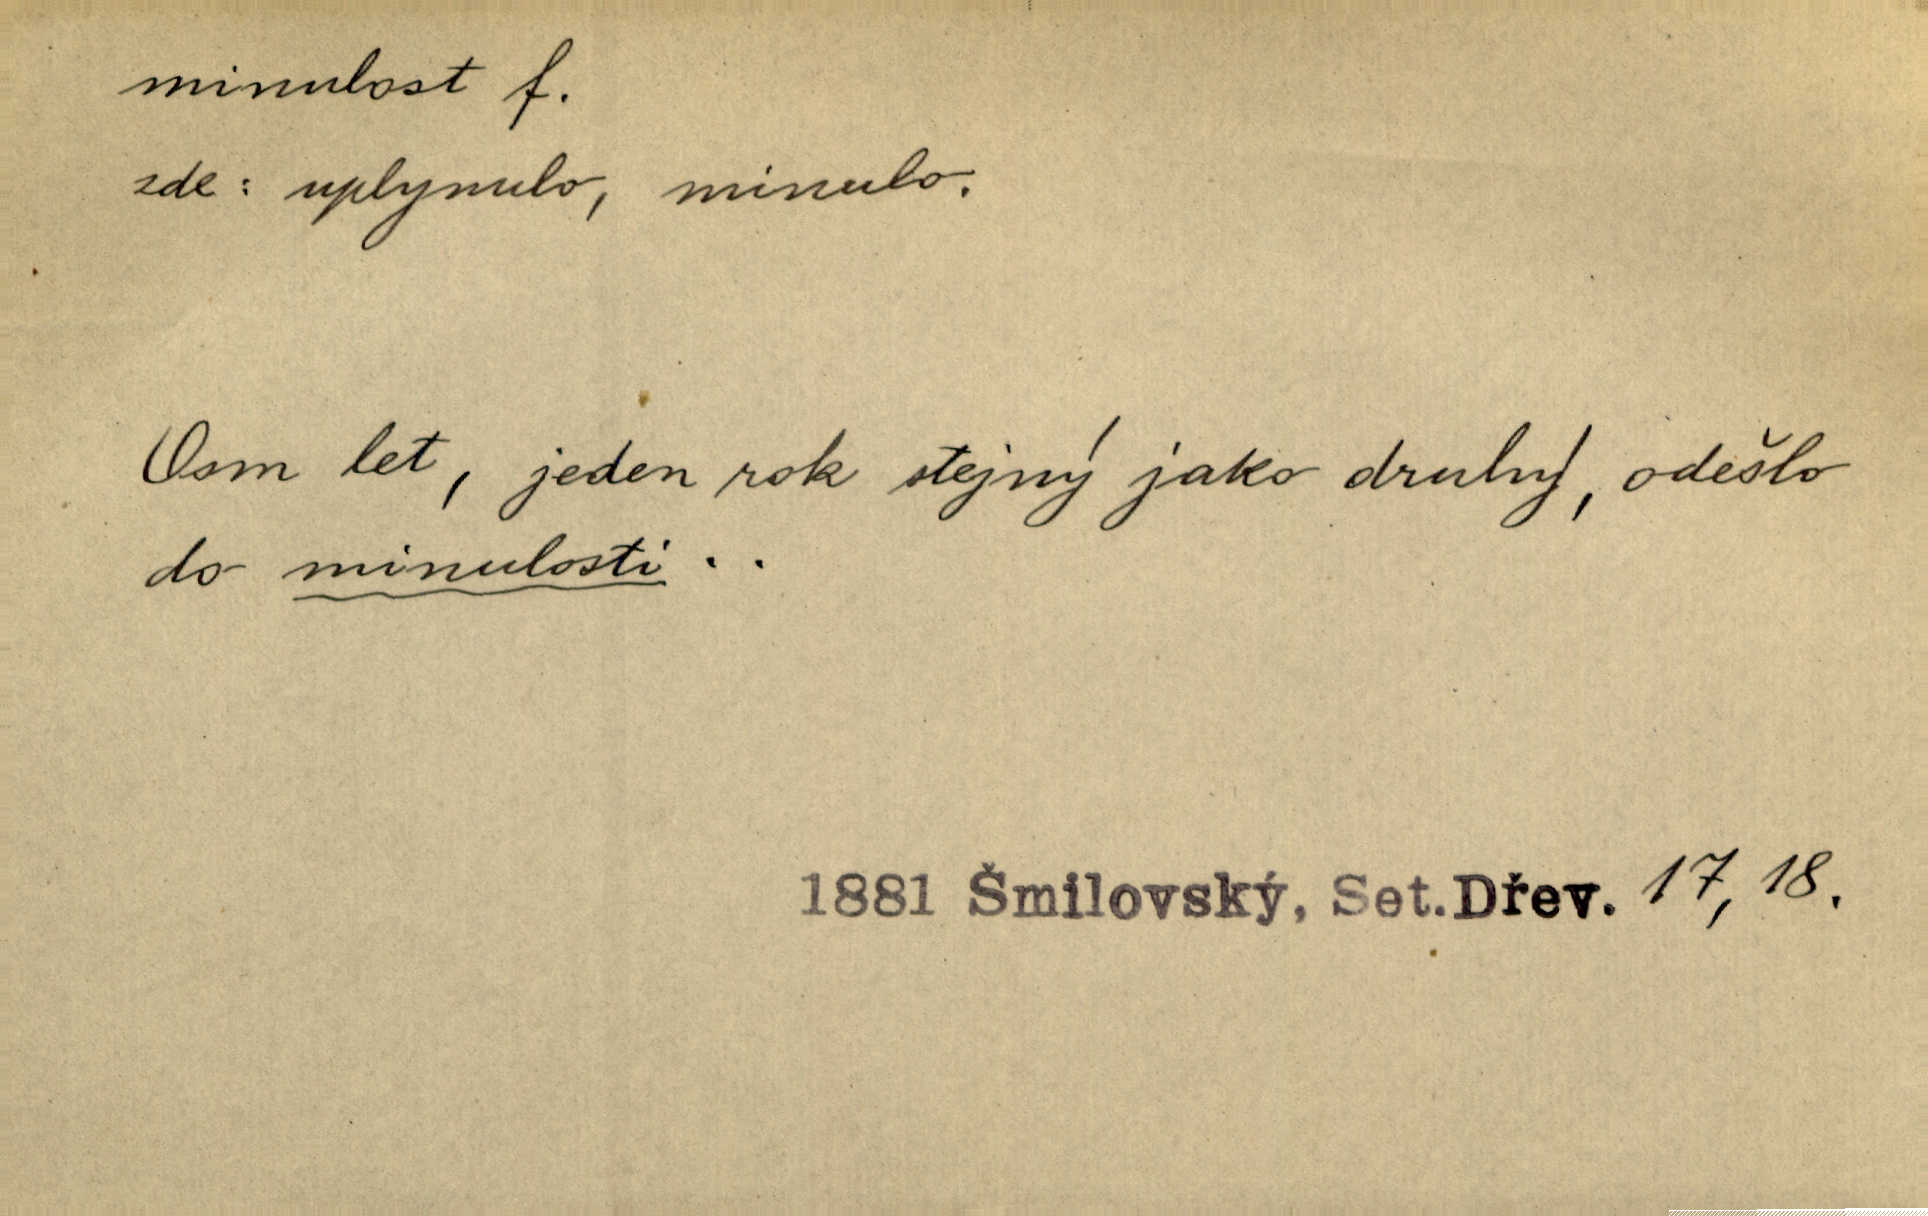 minulost f.
zde: uplynulo, minulo.
Osm let, jeden rok stejný jako druhý, odešlo
do minulosti . .
1881 Šmilovský, Set.Dřev. 17, 18.